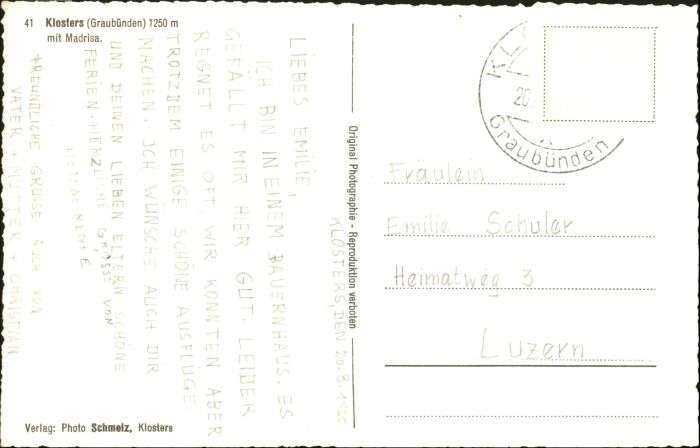 41 Klosters (Graubünden) 1250 m
mit Madrisa.
KLOSTERS, DEN 20.8.
LIEBES EMILIE,
ICH BIN IN EINEM BAUERNHAUS. ES
GEFÄLLT MIR HIER GUT. LEIDER
REGNET ES OFT. WIR KONNTEN ABER
TROTZDEM EINIGE SCHÖNE AUSFLÜGE
MACHEN. ICH WÜNSCHE AUCH DIR
UND DEINEN LIEBEN ELTERN SCHÖNE
FERIEN. HERZLICHE GRÜSSE VON
FREUNDLICHE GRÜSSE AUCH VON
VATER + MUTTER + CHRISTIAN
Verlag: Photo Schmelz, Klosters
Original Photographie - Reproduktion verboten
KL
20
Graubünden
Fräulein
Emilie Schuler
Heimatweg 3
Luzern